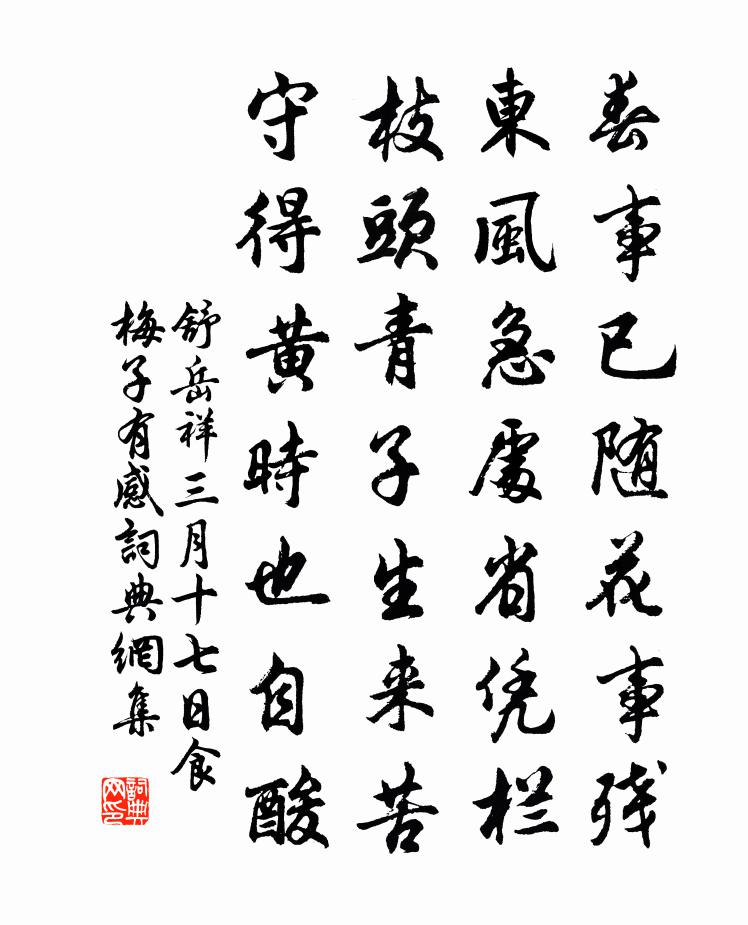 春事已随花事残
東風急處省凭栏
枝頭青子生来苦
守得黄時也自酸
舒岳祥三月十七日食
梅子有感詞典網集
詞典
网印